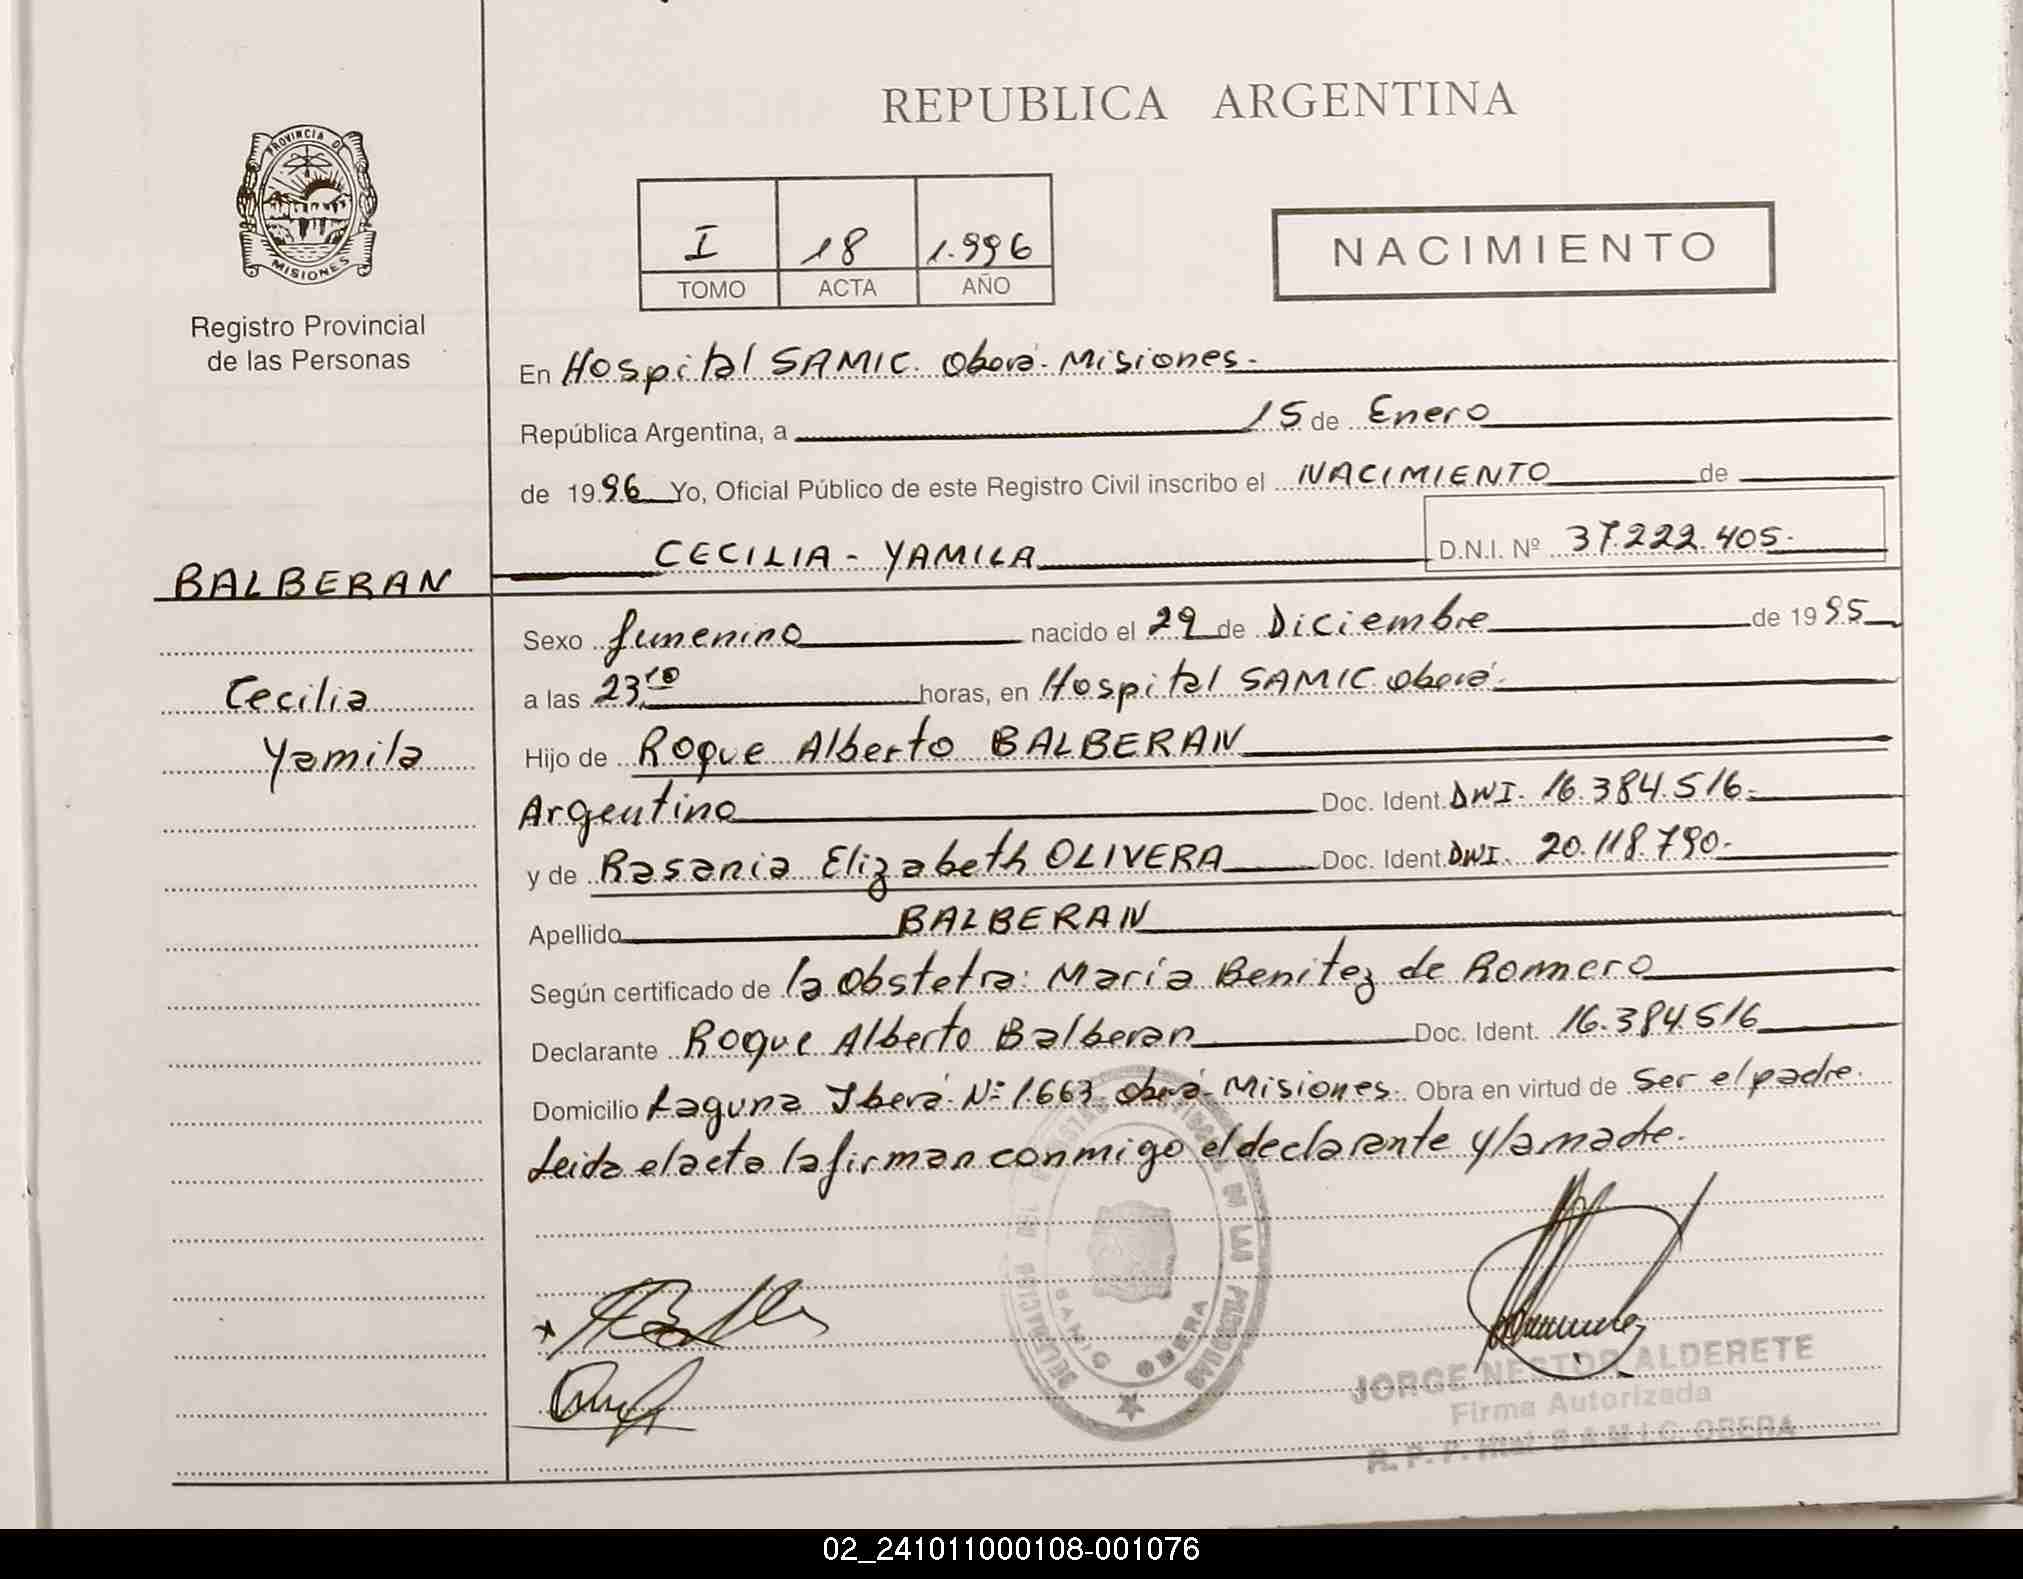 REPUBLICA ARGENTINA
PROVINCIA DE
MISIONES
Registro Provincial
de las Personas
I 18 1.996
TOMO ACTA AÑO
NACIMIENTO
En Hospital SAMIC. Oberá. Misiones.
República Argentina, a 15 de Enero
de 1996 Yo, Oficial Público de este Registro Civil inscribo el NACIMIENTO de
CECILIA - YAMILA D.N.I. Nº 37.222.405.
BALBERAN
Cecilia
Yamila
Sexo femenino nacido el 29 de Diciembre de 1995
a las 23,10 horas, en Hospital SAMIC Oberá.
Hijo de Roque Alberto BALBERAN
Argentino Doc. Ident. DNI. 16.384.516.
y de Rasania Elizabeth OLIVERA Doc. Ident. DNI. 20.118.790.
Apellido BALBERAN
Según certificado de la Obstetra: María Benitez de Romero
Declarante Roque Alberto Balberan Doc. Ident. 16.384.516
Domicilio Laguna Iberá Nº 1.663. Oberá. Misiones. Obra en virtud de Ser el padre.
Leida el acta la firman conmigo el declarante y la madre.
SAMIC OBERA
JORGE NESTOR ALDERETE
Firma Autorizada
R. P. P. Htal. S.A.M.I.C. OBERA
02_241011000108-001076